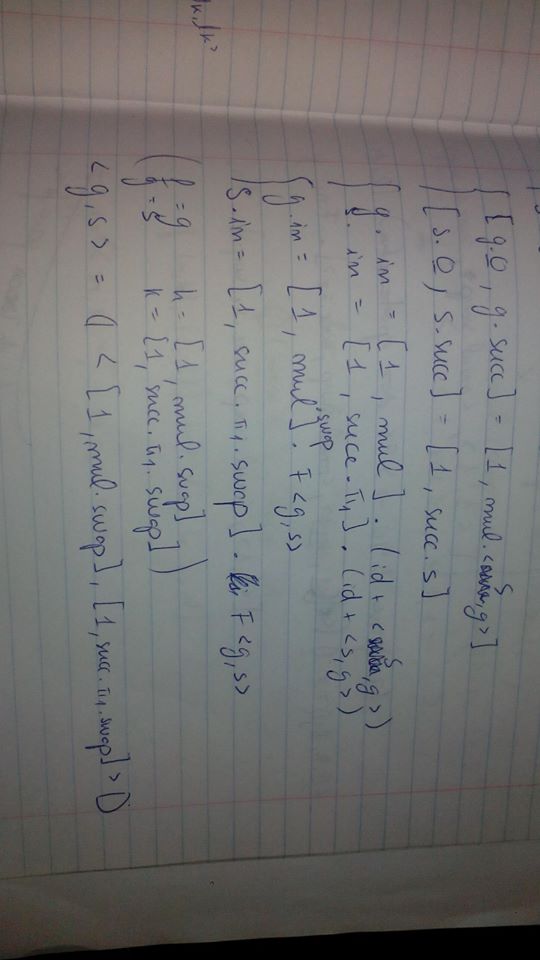 [g.0, g.succ] = [1, mul.<s,g>]
[s.0, s.succ] = [1, succ.s]
g.in = [1, mul].(id+<s,g>)
s.in = [1, succ.π1].(id+<s,g>)
g.in = [1, mul.swap].F<g,s>
s.in = [1, succ.π1.swap].F<g,s>
(f=g h=[1, mul.swap]
g=s k=[1, succ.π1.swap])
<g,s> = (|<[1, mul.swap], [1, succ.π1.swap]>|)